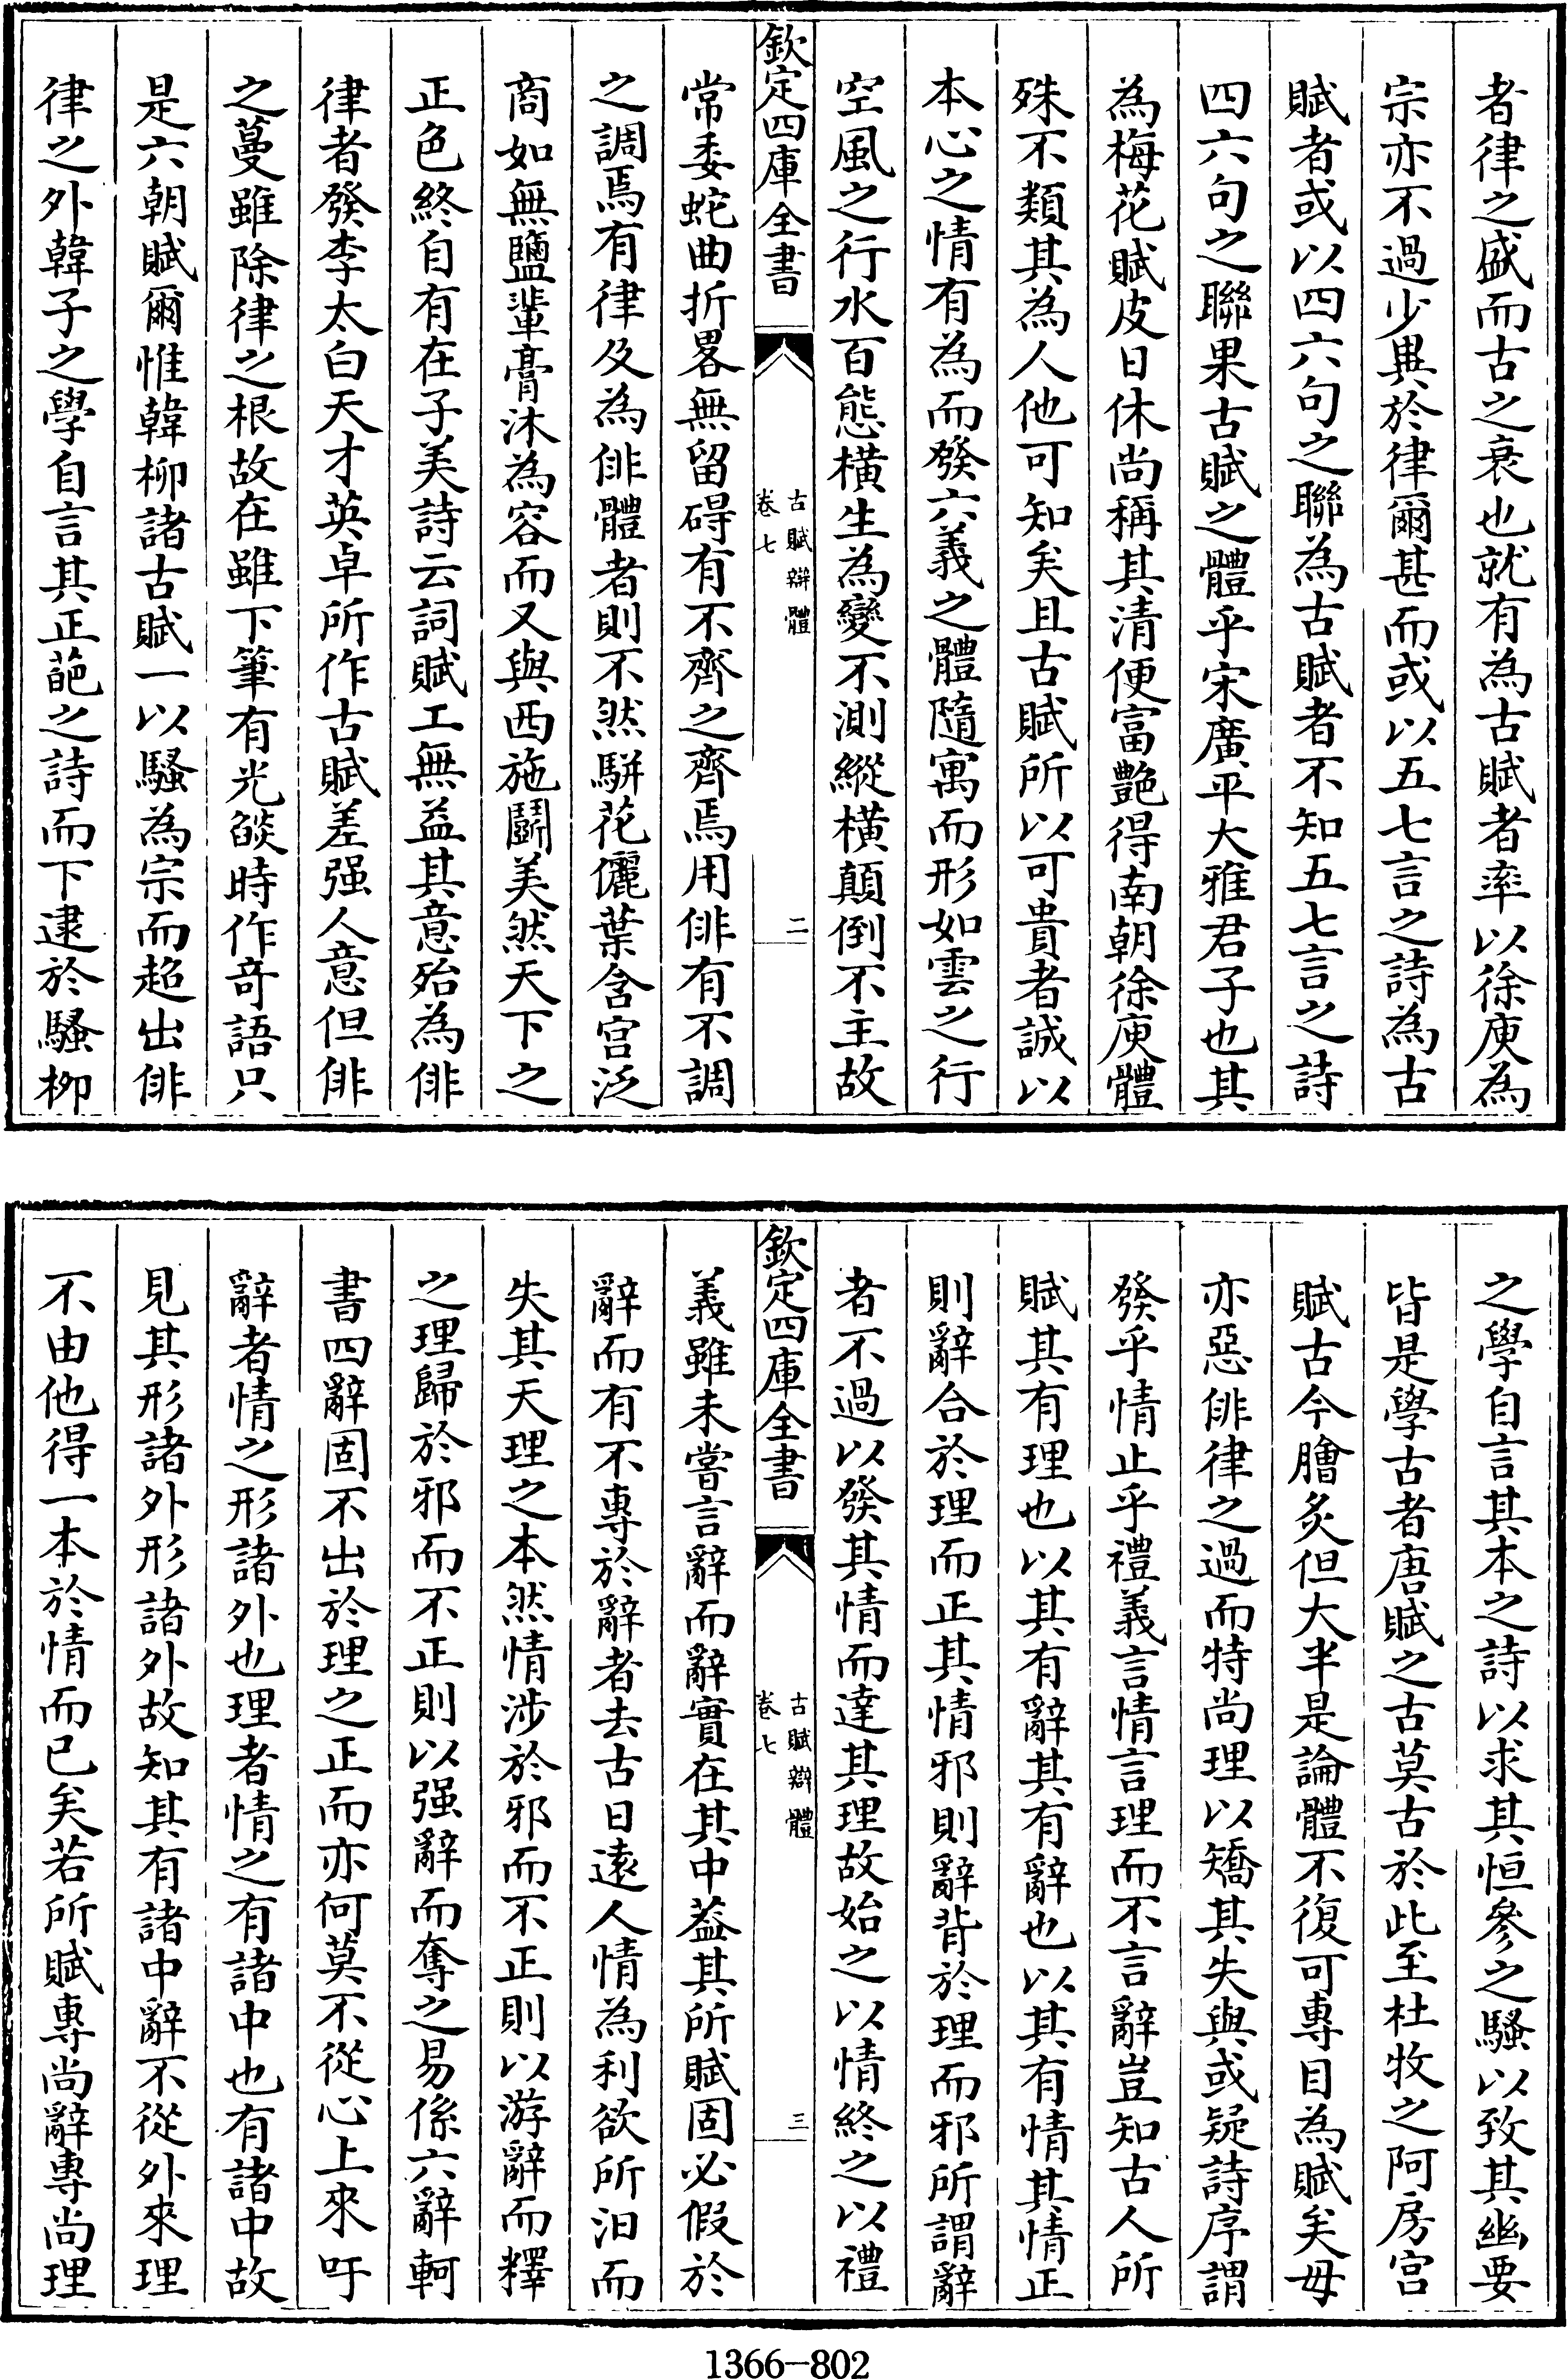 者律之盛而古之衰也就有為古賦者率以徐庾為
宗亦不過少異於律爾甚而或以五七言之詩為古
賦者或以四六句之聯為古賦者不知五七言之詩
四六句之聯果古賦之體乎宋廣平大雅君子也其
為梅花賦皮日休尚稱其清便富艷得南朝徐庾體
殊不類其為人他可知矣且古賦所以可貴者誠以
本心之情有為而發六義之體隨寓而形如雲之行
空風之行水百態橫生為變不測縱橫顛倒不主故
欽定四庫全書
古賦辯體
卷七
二
常委蛇曲折畧無留碍有不齊之齊焉用俳有不調
之調焉有律及為俳體者則不然駢花儷葉含宫泛
商如無鹽輩膏沐為容而又與西施鬭美然天下之
正色終自有在子美詩云詞賦工無益其意殆為俳
律者發李太白天才英卓所作古賦差强人意但俳
之蔓雖除律之根故在雖下筆有光燄時作奇語只
是六朝賦爾惟韓柳諸古賦一以騷為宗而超出俳
律之外韓子之學自言其正葩之詩而下逮於騷柳
之學自言其本之詩以求其恒參之騷以致其幽要
皆是學古者唐賦之古莫古於此至杜牧之阿房宫
賦古今膾炙但大半是論體不復可專目為賦矣毋
亦惡俳律之過而特尚理以矯其失與或疑詩序謂
發乎情止乎禮義言情言理而不言辭豈知古人所
賦其有理也以其有辭其有辭也以其有情其情正
則辭合於理而正其情邪則辭背於理而邪所謂辭
者不過以發其情而達其理故始之以情終之以禮
欽定四庫全書
古賦辯體
卷七
三
義雖未嘗言辭而辭實在其中葢其所賦固必假於
辭而有不專於辭者去古日逺人情為利欲所汩而
失其天理之本然情涉於邪而不正則以游辭而釋
之理歸於邪而不正則以强辭而奪之易係六辭軻
書四辭固不出於理之正而亦何莫不從心上來吁
辭者情之形諸外也理者情之有諸中也有諸中故
見其形諸外形諸外故知其有諸中辭不從外來理
不由他得一本於情而已矣若所賦專尚辭專尚理
1366-802